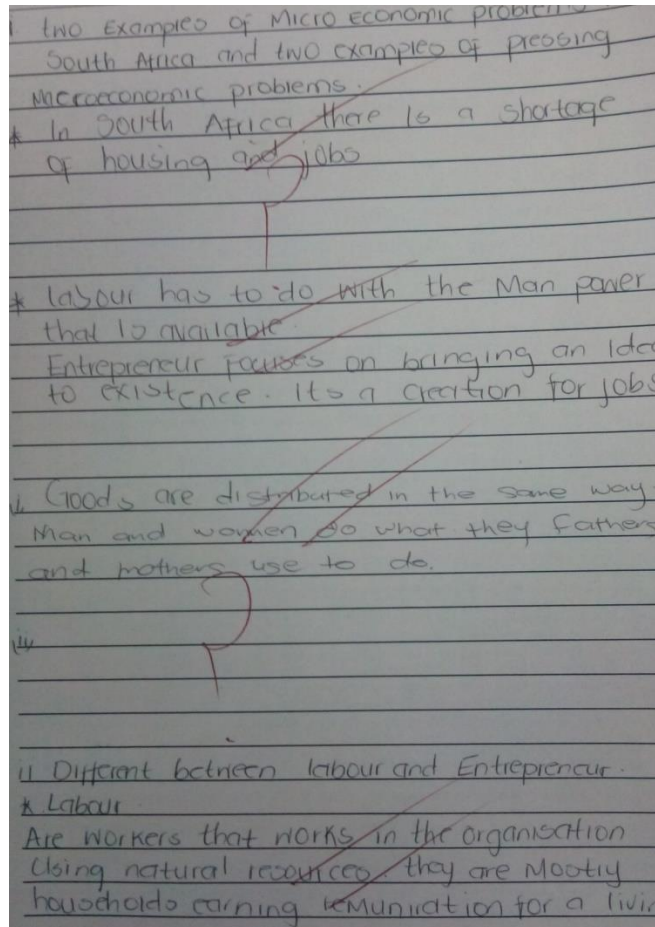 two Examples of Micro economic problems
South Africa and two examples of pressing
Macroeconomic problems.
* In South Africa there is a shortage
of housing and jobs
* labour has to do with the Man power
that is available.
Entrepreneur Focuses on bringing an Idea
to existence. Its a creation for jobs
Goods are distributed in the same way
Man and women do what they Fathers
and mothers use to do.
iv
ii Different between labour and Entrepreneur.
* Labour
Are workers that works in the organisation
Using natural resources. they are Mostly
households earning remunication for a livi